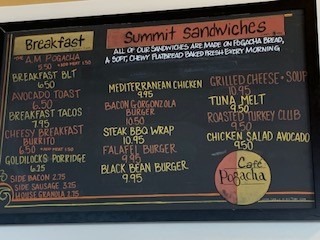 Breakfast
A.M. POGACHA
BREAKFAST BLT
6.50
AVOCADO TOAST
6.50
BREAKFAST TACOS
7.95
CHEESY BREAKFAST
BURRITO
6.50
GOLDILOCKS PORRIDGE
6.95
SIDE BACON 2.75
SIDE SAUSAGE 3.25
HOUSE GRANOLA 2.75
Summit Sandwiches
ALL OF OUR SANDWICHES ARE MADE ON POGACHA BREAD,
A SOFT, CHEWY FLATBREAD BAKED FRESH EVERY MORNING
MEDITERRANEAN CHICKEN
9.95
BACON GORGONZOLA
BURGER
10.50
STEAK BBQ WRAP
10.95
FALAFEL BURGER
9.95
BLACK BEAN BURGER
9.95
GRILLED CHEESE + SOUP
10.95
TUNA MELT
9.50
ROASTED TURKEY CLUB
9.50
CHICKEN SALAD AVOCADO
9.50
Café
Pogacha